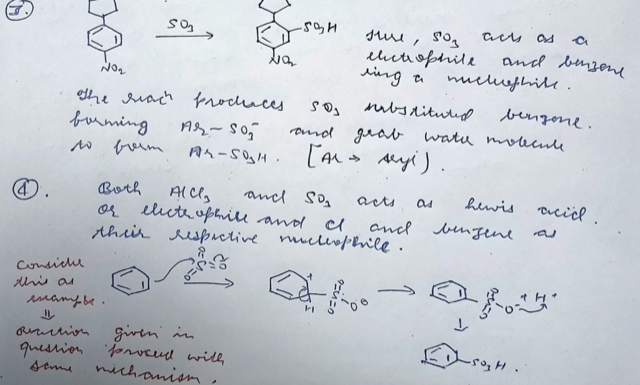 SO₃
SO₃H
NO₂
NO₂
Here, SO₃ acts as a
electrophile and benzene
ring a nucleophile.
The reacn produces SO₃ substituted benzene.
forming Ar-SO₃⁻ and grab water molecule
to form Ar-SO₃H. [Ar → Aryl).
④. Both AlCl₃ and SO₃ acts as Lewis acid.
or electrophile and Cl and benzene as
their respective nucleophile.
Consider
this as
example.
⇓
Reaction given in
question proceed with
same mechanism.
O
S=O
O
+
H
O
S
O
O⊖
O
S
O
O⁻ + H⁺
↓
SO₃H.